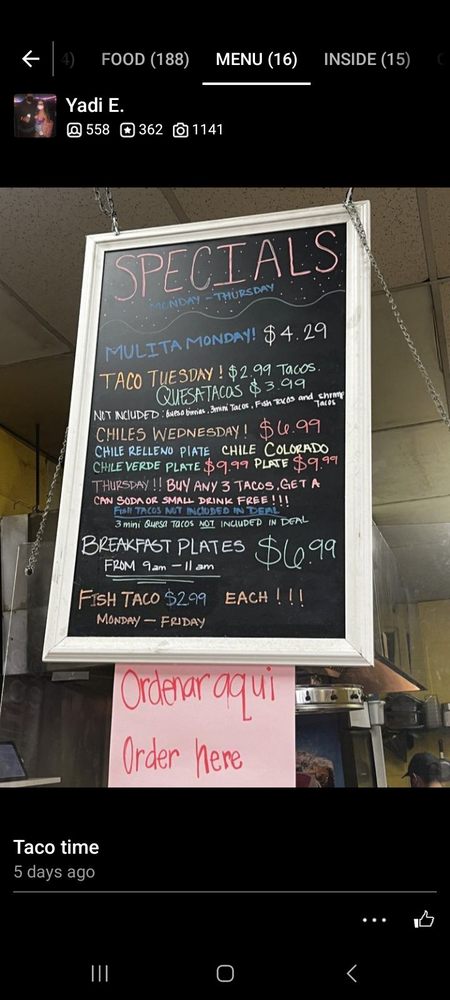 4)
FOOD (188)
MENU (16)
INSIDE (15)
Yadi E.
558 362 1141
SPECIALS
MONDAY - THURSDAY
MULITA MONDAY! $4.29
TACO TUESDAY! $2.99 TACOS.
QUESATACOS $3.99
NOT INCLUDED: Quesobirrias, 3mini Tacos, Fish Tacos and shrimp
Tacos
CHILES WEDNESDAY! $6.99
CHILE RELLENO PLATE CHILE COLORADO
CHILE VERDE PLATE $9.99 PLATE $9.99
THURSDAY!! BUY ANY 3 TACOS, GET A
CAN SODA OR SMALL DRINK FREE!!!
FISH TACOS NOT INCLUDED IN DEAL
3 mini Quesa Tacos NOT INCLUDED IN DEAL
BREAKFAST PLATES $6.99
FROM 9am - 11am
FISH TACO $2.99 EACH!!!
MONDAY - FRIDAY
Ordenar aqui
Order here
Taco time
5 days ago